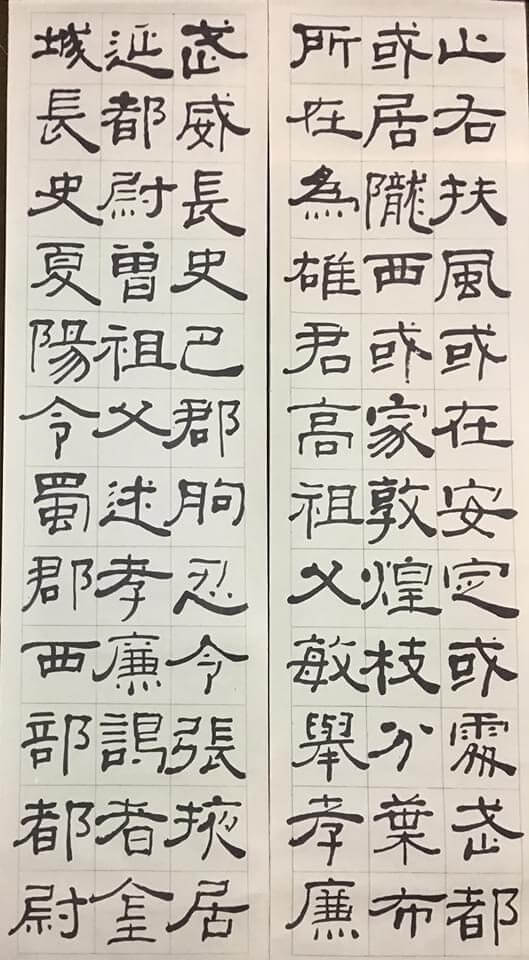 止右扶風或在安定或處武都
或居隴西或家敦煌枝分葉布
所在為雄君高祖父敏舉孝廉
武威長史巴郡朐忍令張掖居
延都尉曾祖父述孝廉謁者金
城長史夏陽令蜀郡西部都尉